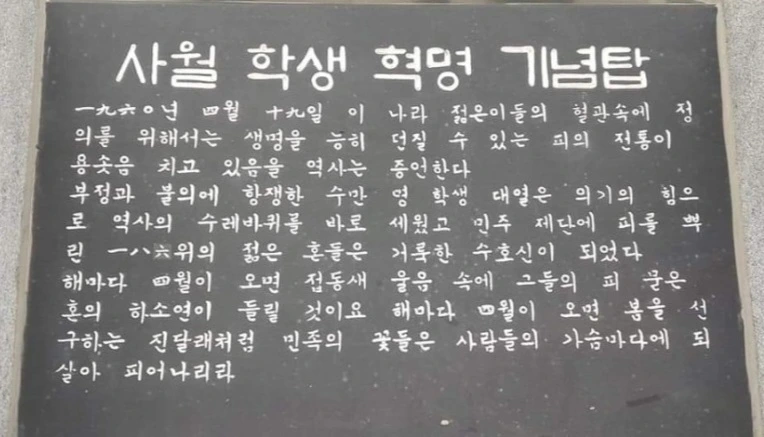 사월 학생 혁명 기념탑
一九六○년 四월 十九일 이 나라 젊은이들의 혈관속에 정
의를 위해서는 생명을 능히 던질 수 있는 피의 전통이
용솟음 치고 있음을 역사는 증언한다
부정과 불의에 항쟁한 수만 명 학생 대열은 의기의 힘으
로 역사의 수레바퀴를 바로 세웠고 민주 제단에 피를 뿌
린 一八六위의 젊은 혼들은 거룩한 수호신이 되었다
해마다 四월이 오면 접동새 울음 속에 그들의 피 묻은
혼의 하소연이 들릴 것이요 해마다 四월이 오면 봄을 선
구하는 진달래처럼 민족의 꽃들은 사람들의 가슴마다에 되
살아 피어나리라